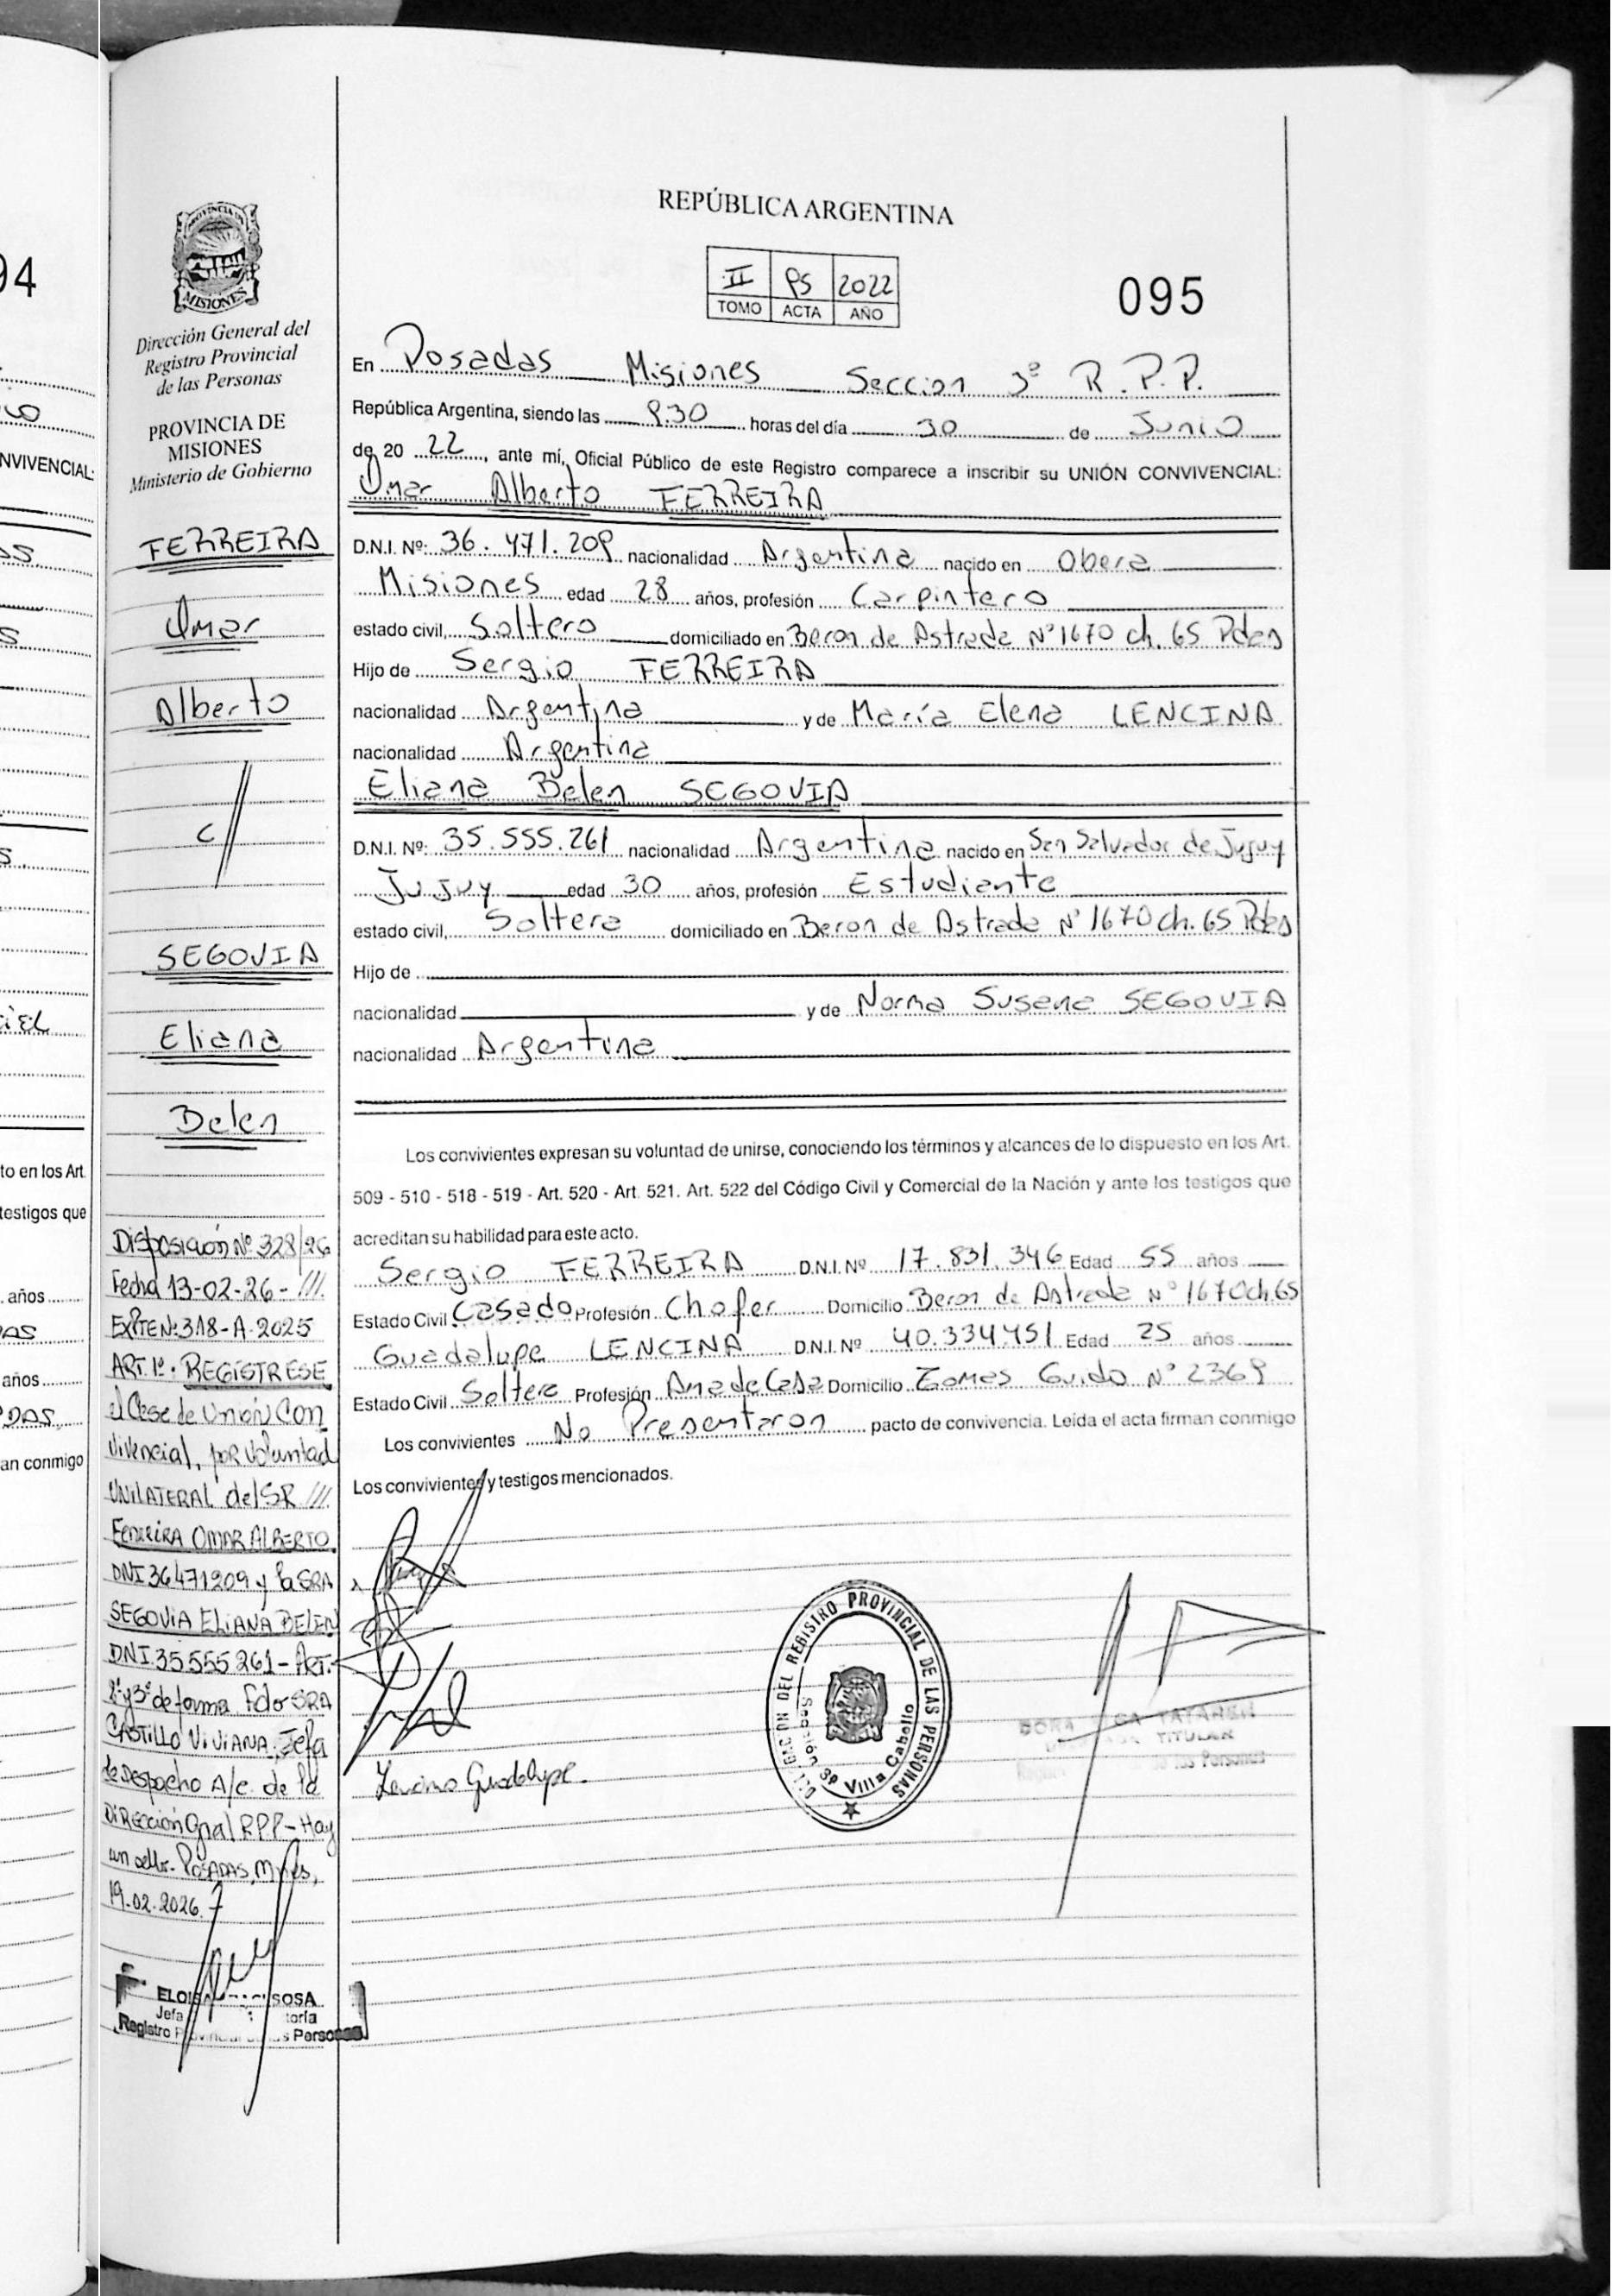 94
REPÚBLICA ARGENTINA
II 95 2022
TOMO ACTA AÑO
095
PROVINCIA DE
MISIONES
Dirección General del
Registro Provincial
de las Personas
PROVINCIA DE
MISIONES
Ministerio de Gobierno
En Posadas Misiones Seccion 3ª R.P.P.
República Argentina, siendo las 9.30 horas del día 30 de Junio
de 20 22, ante mí, Oficial Público de este Registro comparece a inscribir su UNIÓN CONVIVENCIAL:
Omar Alberto FERREIRA
D.N.I. Nº: 36.471.209 nacionalidad Argentina nacido en Obera
Misiones edad 28 años, profesión Carpintero
estado civil, Soltero domiciliado en Beron de Astrada Nº 1670 ch. 65 Pdas
Hijo de Sergio FERREIRA
nacionalidad Argentina y de María Elena LENCINA
nacionalidad Argentina
Eliana Belen SEGOVIA
D.N.I. Nº: 35.555.261 nacionalidad Argentina nacido en San Salvador de Jujuy
Jujuy edad 30 años, profesión Estudiante
estado civil, Soltera domiciliado en Beron de Astrada Nº 1670 ch. 65 Pdas
Hijo de
nacionalidad y de Norma Susana SEGOVIA
nacionalidad Argentina
Los convivientes expresan su voluntad de unirse, conociendo los términos y alcances de lo dispuesto en los Art.
509 - 510 - 518 - 519 - Art. 520 - Art. 521. Art. 522 del Código Civil y Comercial de la Nación y ante los testigos que
acreditan su habilidad para este acto.
Sergio FERREIRA D.N.I. Nº 17.831.346 Edad 55 años
Estado Civil Casado Profesión Chofer Domicilio Beron de Astrada Nº 1670 ch. 65
Guadalupe LENCINA D.N.I. Nº 40.334.451 Edad 25 años
Estado Civil Soltera Profesión Ama de Casa Domicilio Gomes Guido Nº 2369
Los convivientes No Presentaron pacto de convivencia. Leída el acta firman conmigo
Los convivientes y testigos mencionados.
Lencina Guadalupe.
DELEGACION DEL REGISTRO PROVINCIAL DE LAS PERSONAS
Sección 3ª Villa Cabello
DORA
TITULAR
de las Personas
FERREIRA
Omar
Alberto
c//
SEGOVIA
Eliana
Belen
Disposición Nº 328/26
Fecha 13-02-26-///.
EXPTE Nº: 318-A-2025
ART. 1º: REGÍSTRESE
el Cese de Unión Con
vivencial, por voluntad
UNILATERAL del SR ///.
FERREIRA OMAR ALBERTO.
DNI 36471209 y la SRA
SEGOVIA ELIANA BELEN
DNI 35555261 - ART.
2º y 3º de forma. Fdo SRA
CASTILLO VIVIANA. Jefa
de Despacho A/c. de la
Dirección Gral RPP - Hay
un sello - POSADAS, Mnes,
19-02-2026.
SOSA
Jefa
Registro
NVIVENCIAL:
to en los Art.
testigos que
años
años
an conmigo